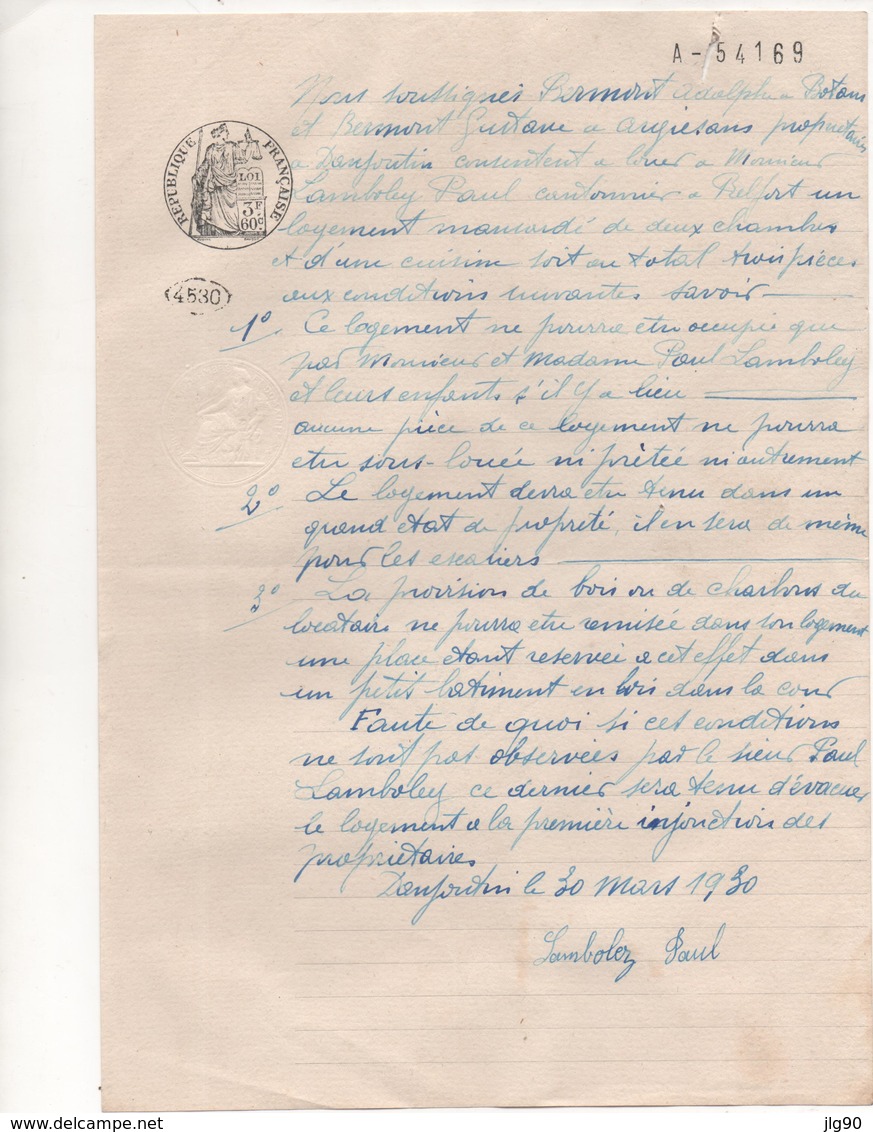 A-54169
Nous soussignés Bermont Adolphe a Botans
et Bermont Gustave a Argiesans propriétaires
a Danjoutin consentent a louer a Monsieur
RÉPUBLIQUE FRANÇAISE
LOI
3F
60c
Lamboley Paul cantonnier a Belfort un
logement mansardé de deux chambres
et d'une cuisine soit au total trois pièces
4530
aux conditions suivantes savoir
1° Ce logement ne pourra etre occupée que
par Monsieur et Madame Paul Lamboley
et leurs enfants s'il y a lieu
aucune pièce de ce logement ne pourra
etre sous-louée ni prêtée ni autrement
2° Le logement devra etre tenu dans un
grand etat de propreté, il en sera de même
pour les escaliers
3° La provision de bois ou de charbons du
locataire ne pourra etre remisée dans son logement
une place etant reservée a cet effet dans
un petit batiment en bois dans la cour
Faute de quoi si ces conditions
ne sont pas observées par le sieur Paul
Lamboley ce dernier sera tenu d'évacuer
le logement a la première injonction des
propriétaires
Danjoutin le 30 Mars 1930
Lamboley Paul
delcampe.net
jlg90